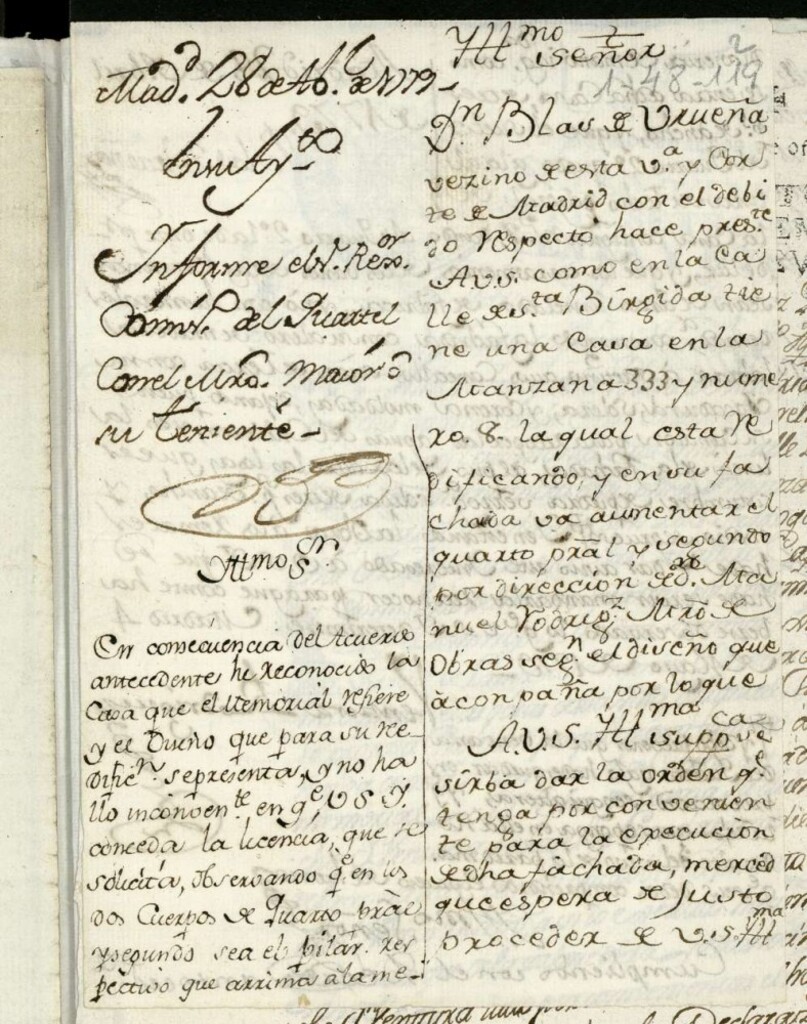 Madd. 28 de Ab.l de 1779-
En su Ay.to
Informe el S.r Rexor.
Comis.o del Quartel
Con el Mro. Maior ó
su teniente-
Yllmo Sr.
En consecuencia del Acuerdo
antecedente he reconocido la
Casa que el Memorial refiere
y el Diseño que para su ree-
dific.n se presenta, y no ha
llo inconven.te en q.e V S Y.
conceda la licencia, que se
solicita, observando q.e en los
dos Cuerpos de Quarto pral
y segundo sea el pilar res
pectivo que arrima á la me-
Yllmo Señor
2
1-48-119
Dn Blas de Urueña
vezino de esta V.a y Cor
te de Madrid con el debi
do respecto hace pres.te
A V.S. como en la Ca
lle de S.ta Birgida tie
ne una Casa en la
Manzana 333 y nume
ro. 8. la qual esta re
dificando, y en su fa
chada va aumentar el
quarto pral y segundo
por direccion de d. Ma
nuel Rodrig.z Mro de
Obras seg.n el diseño que
acompaña por lo que
A.V.S. Yllma suppca se
sirba dar la orden q.e
tenga por combenien
te para la execucion
de dha fachada, merced
que espera de Justo
proceder de V.S. Yllma